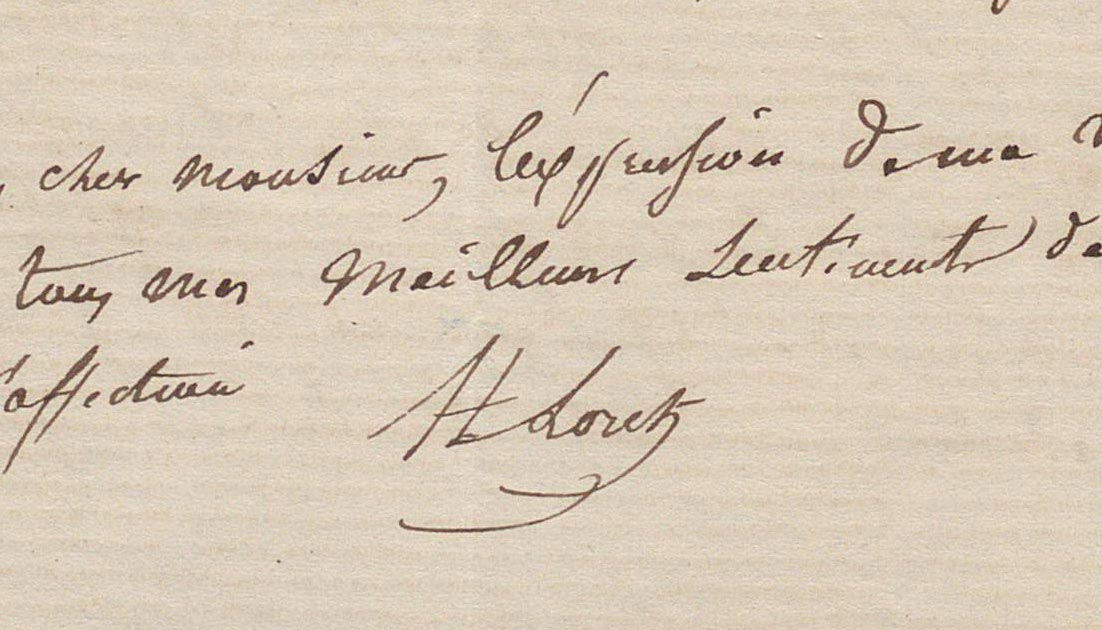 , cher monsieur, l'expression de ma
tous mes meilleurs sentiments de
d'affection
H Loret